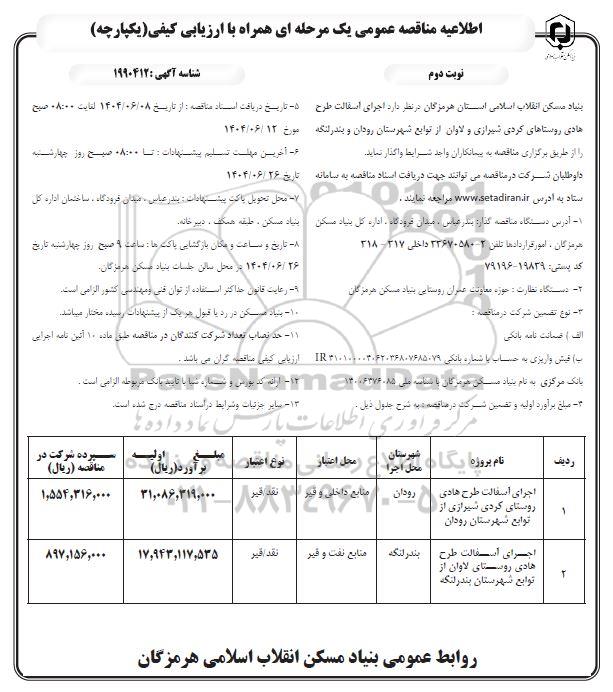 اطلاعیه مناقصه عمومی یک مرحله ای همراه با ارزیابی کیفی(یکپارچه)
نوبت دوم
شناسه آگهی :۱۹۹۰۴۱۲
بنیاد مسکن انقلاب اسلامی استان هرمزگان درنظر دارد اجرای آسفالت طرح
هادی روستاهای کردی شیرازی و لاوان از توابع شهرستان رودان و بندرلنگه
را از طریق برگزاری مناقصه به پیمانکاران واجد شرایط واگذار نماید.
داوطلبان شرکت درمناقصه می توانند جهت دریافت اسناد مناقصه به سامانه
ستاد به آدرس www.setadiran.ir مراجعه نمایند .
۱- آدرس دستگاه مناقصه گذار: بندرعباس ، میدان فرودگاه ، اداره کل بنیاد مسکن
هرمزگان ، امورقراردادها تلفن ۲-۳۳۶۷۰۵۸۰ داخلی ۳۱۷ - ۳۱۸
کد پستی: ۱۹۸۳۹-۷۹۱۹۶
۲- دستگاه نظارت : حوزه معاونت عمران روستایی بنیاد مسکن هرمزگان
۳- نوع تضمین شرکت درمناقصه :
الف ) ضمانت نامه بانکی
ب) فیش واریزی به حساب با شماره بانکی
بانک مرکزی به نام بنیاد مسکن هرمزگان با شناسه ملی ۱۴۰۰۶۳۷۶۰۸۵
۴- مبلغ برآورد اولیه و تضمین شرکت درمناقصه : به شرح جدول ذیل .
۵- تاریخ دریافت اسناد مناقصه : از تاریخ ۱۴۰۴/۰۶/۰۸ لغایت ۰۸:۰۰ صبح
مورخ ۱۴۰۴/۰۶/۱۲
۶- آخرین مهلت تسلیم پیشنهادات : تا ۰۸:۰۰ صبح روز چهارشنبه
تاریخ ۱۴۰۴/۰۶/۲۶
۷- محل تحویل پاکت پیشنهادات : بندرعباس ، میدان فرودگاه ، ساختمان اداره کل
بنیاد مسکن ، طبقه همکف ، دبیرخانه.
۸- تاریخ و ساعت و مکان بازگشایی پاکت ها : ساعت ۹ صبح روز چهارشنبه تاریخ
۱۴۰۴/۰۶/۲۶ در محل سالن جلسات بنیاد مسکن هرمزگان.
۹- رعایت قانون حداکثر استفاده از توان فنی ومهندسی کشور الزامی است.
۱۰- بنیاد مسکن در رد یا قبول هر یک از پیشنهادات رسیده مختار میباشد.
۱۱- حد نصاب تعداد شرکت کنندگان در مناقصه طبق ماده ۱۰ آئین نامه اجرایی
ارزیابی کیفی مناقصه گران می باشد .
۱۲- ارائه کد بورس و شماره شبا با تایید بانک مربوطه الزامی است .
۱۳- سایر جزئیات وشرایط دراسناد مناقصه درج شده است.
ردیف
نام پروژه
شهرستان محل اجرا
محل اعتبار
نوع اعتبار
مبلغ اولیه برآورد(ریال)
سپرده شرکت در مناقصه (ریال)
۱
اجرای آسفالت طرح هادی
روستای کردی شیرازی از
توابع شهرستان رودان
رودان
منابع داخلی و قیر
نقد/قیر
۳۱,۰۸۶,۳۱۹,۰۰۰
۱,۵۵۴,۳۱۶,۰۰۰
۲
اجرای آسفالت طرح
هادی روستای لاوان از
توابع شهرستان بندرلنگه
بندرلنگه
منابع نفت و قیر
نقد/قیر
۱۷,۹۴۳,۱۱۷,۵۳۵
۸۹۷,۱۵۶,۰۰۰
روابط عمومی بنیاد مسکن انقلاب اسلامی هرمزگان
ParsNamadData
مرکز فرآوری اطلاعات پارس نماد داده ها
۰۲۱-۸۸۳۴۹۶۷۰-۵